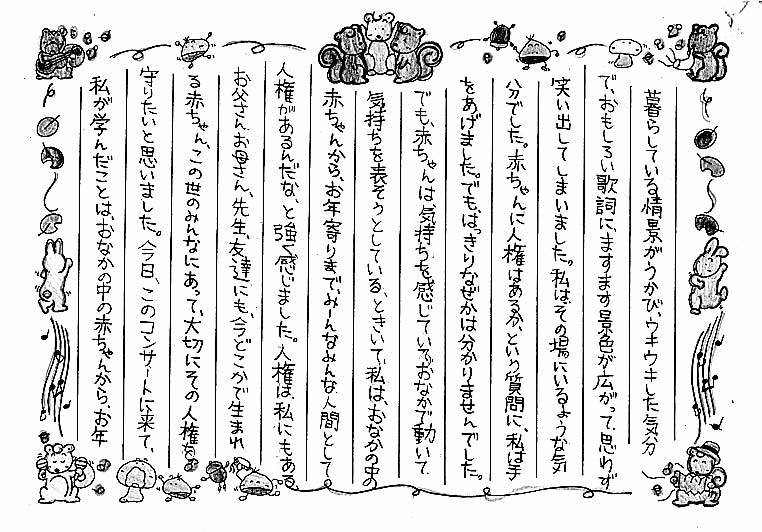 暮らしている情景がうかび、ウキウキした気分
で、おもしろい歌詞に、ますます景色が広がって、思わず
笑い出してしまいました。私は、その場にいるような気
分でした。赤ちゃんに人権はあるか、という質問に、私は手
をあげました。でも、はっきりなぜかは分かりませんでした。
でも、赤ちゃんは、気持ちを感じている、おなかで動いて
気持ちを表そうとしている、ときいて、私は、おなかの中の
赤ちゃんから、お年寄りまで、みーんなみんな人間として
人権があるんだな、と強く感じました。人権は、私にもある
お父さん、お母さん、先生、友達にも、今どこかで生まれ
る赤ちゃん、この世のみんなにあって、大切にその人権を
守りたいと思いました。今日、このコンサートに来て、
私が学んだことは、おなかの中の赤ちゃんから、お年